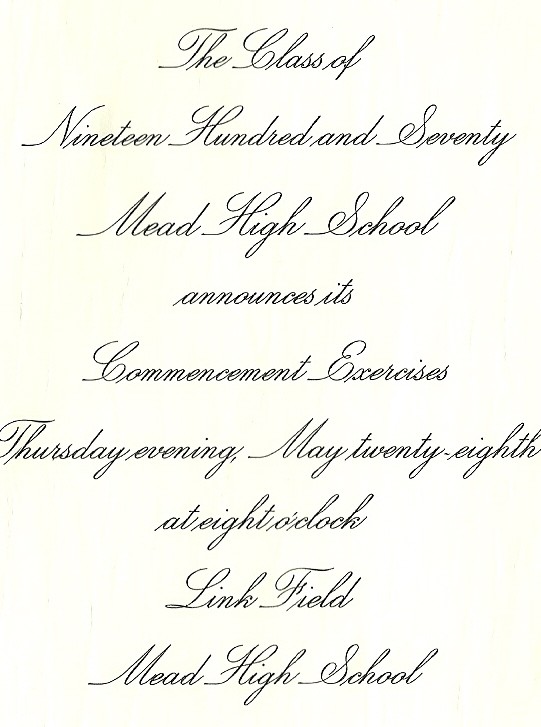 The Class of
Nineteen Hundred and Seventy
Mead High School
announces its
Commencement Exercises
Thursday evening, May twenty-eighth
at eight o'clock
Link Field
Mead High School